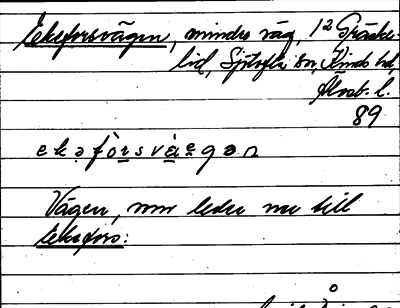 Ekeforsvägen, mindre väg, 12 Gräske-
lid, Sjötofta sn, Kinds hd,
Älvsb. l.
89
e k ə f ò r s v ä̀ g ə n
Vägen, som leder ner till
Ekefors: